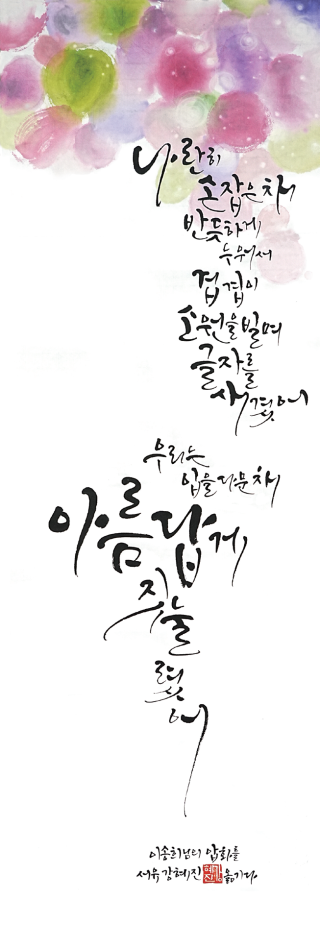 나란히
손잡은 채
반듯하게
누워서
겹겹이
소원을 빌며
글자를
새겼어
우리는
입을 다문 채
아름답게
짓눌
렸
어
이송희님의 압화를
서유 강혜진 옮기다